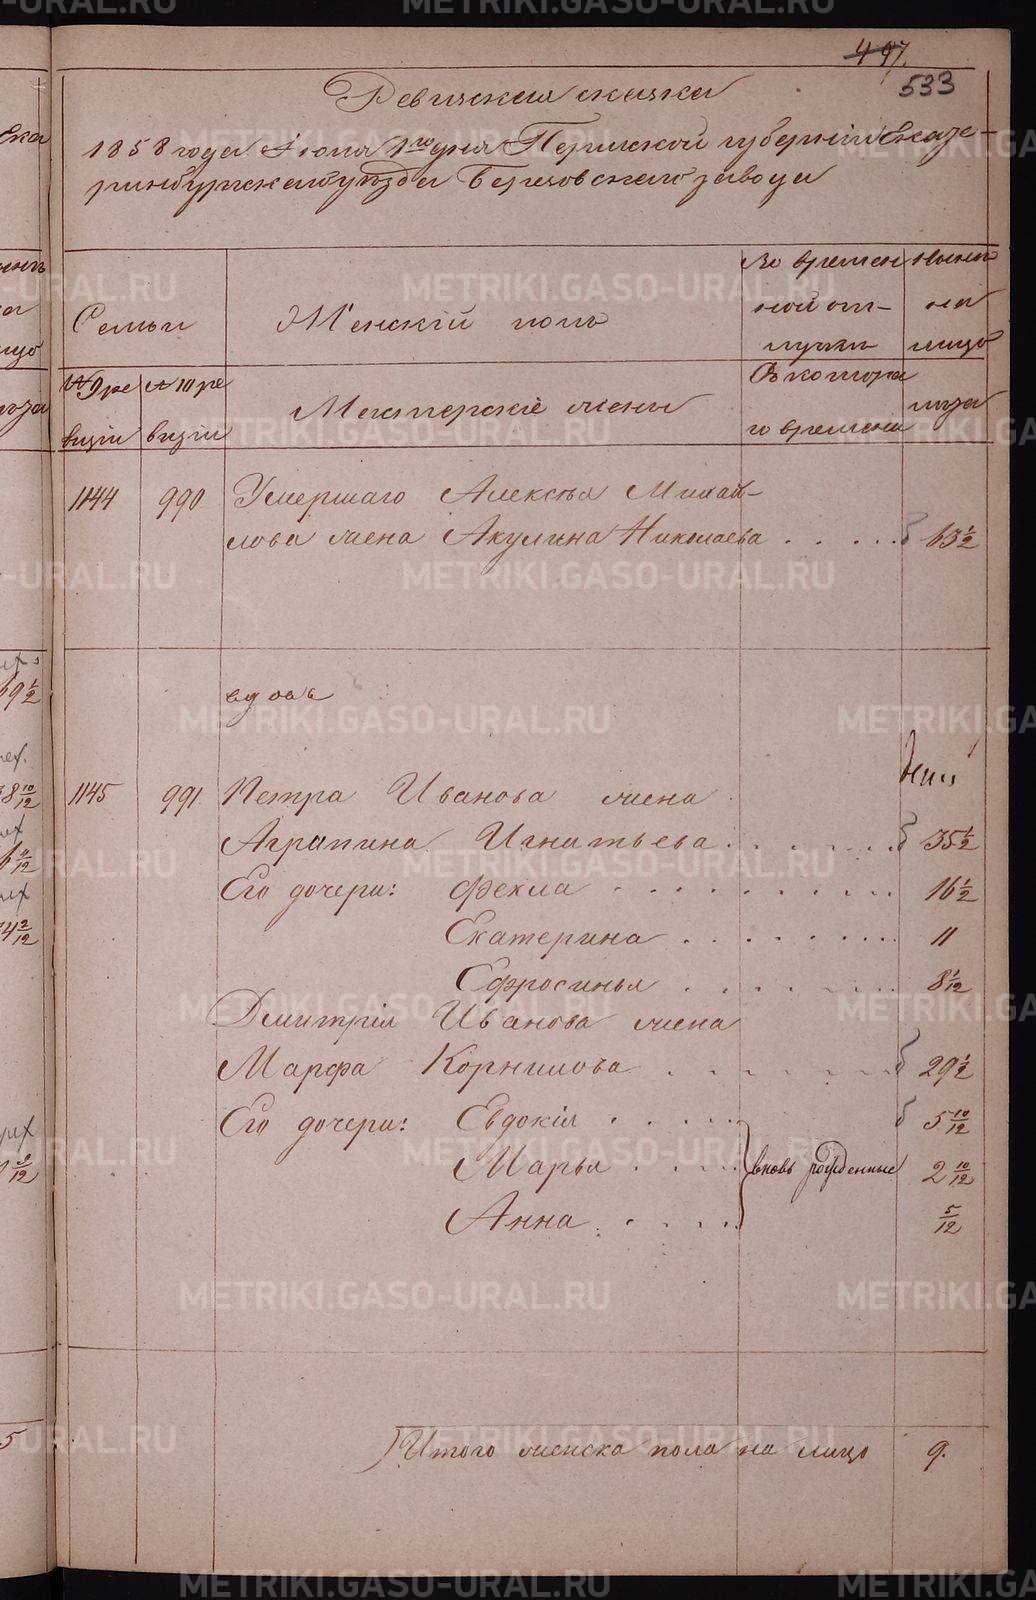 497.
533
Ревизская сказка
1858 года Июня 1го дня Пермской губернии Екате-
ринбургскаго уезда Березовскаго завода
Семьи
Женскій полъ
Во времен
ной от-
лучки
Нынѣ
на
лицо
№ 9 ре
визіи
№ 10 ре
визіи
Мастерскіе жены
Съ котора
го времени
лѣта
1144 990 Умершаго Алексѣя Михай-
лова жена Акулина Никол
аева . . . . . 63 1/2
вдова
лѣтъ
1145 991 Петра Иванова жена
Аграпина Игнатьева . . . . . . . 35 1/2
Его дочери: Фекла . . . . . . . . . 16 1/2
Екатерина . . . . . . . . 11
Ефросинья . . . . . . . 8 1/12
Дмитрія Иванова жена
Марфа Корнилова . . . . . . . 29 1/2
Его дочери: Евдокія . . . . . 5 10/12
Марья . . . . вновь рожденные 2 10/12
Анна . . . . . 5/12
Итого женска пола на лицо 9.
METRIKI.GASO-URAL.RU